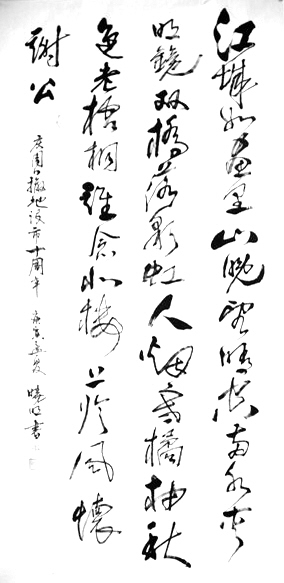 江城如畫里山晚望晴空兩水夾
明鏡双橋落彩虹人烟寒橘柚秋
色老梧桐誰念北樓上臨风懷
謝公
庆周口撤地设市十周年 曉明書